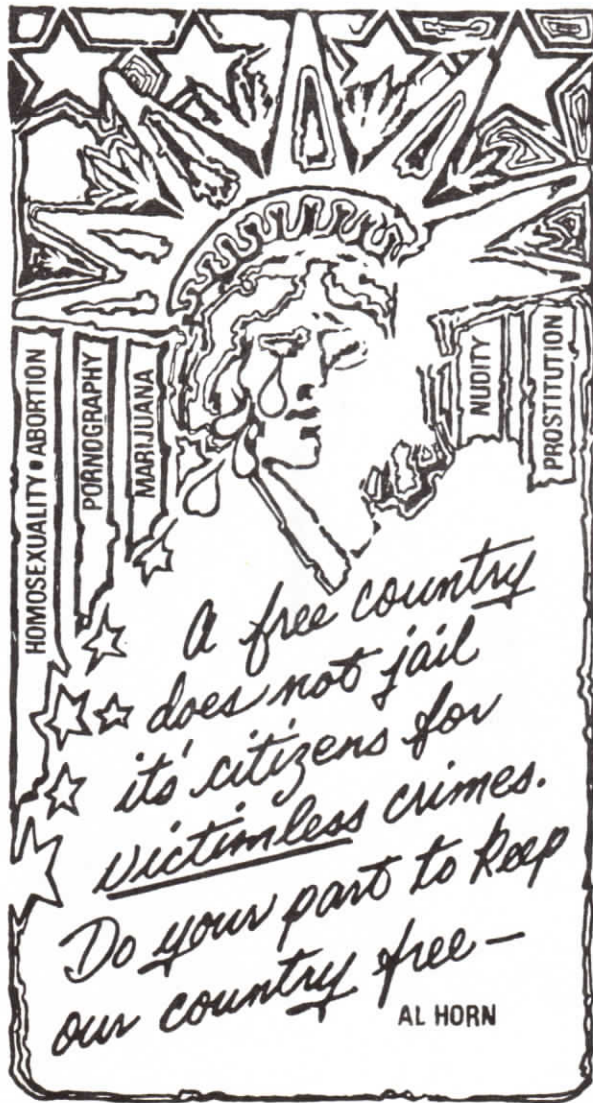 HOMOSEXUALITY • ABORTION
PORNOGRAPHY
MARIJUANA
NUDITY
PROSTITUTION
A free country
does not jail
it's citizens for
victimless crimes.
Do your part to keep
our country free—
AL HORN